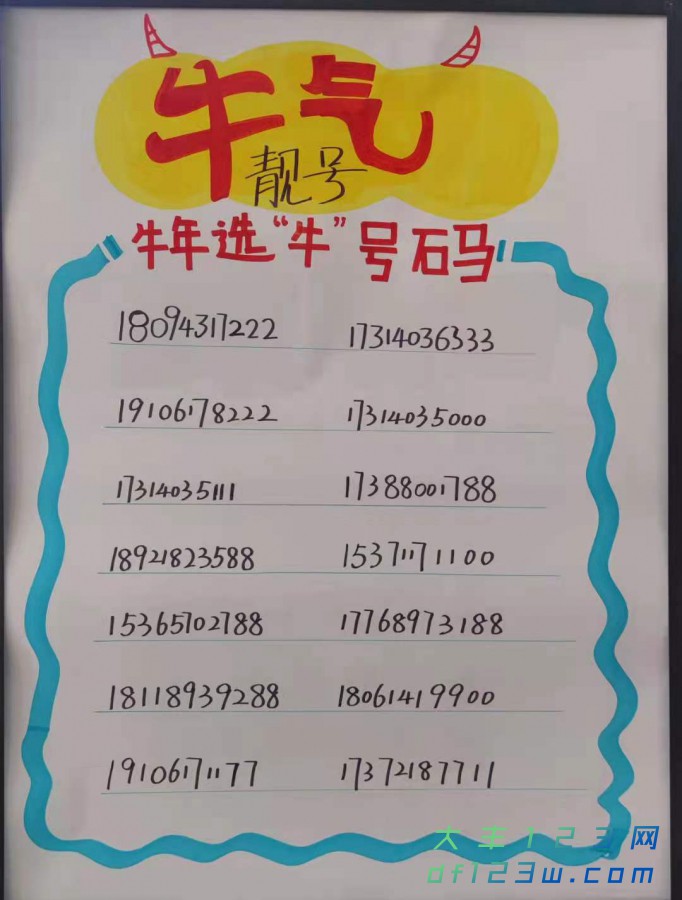 牛气
靓号
牛年选“牛”号码
18094317222 17314036333
19106178222 17314035000
17314035111 17388001788
18921823588 15371171100
15365702788 17768973188
18118939288 18061419900
19106171177 17372187711
大丰123网
df123w.com